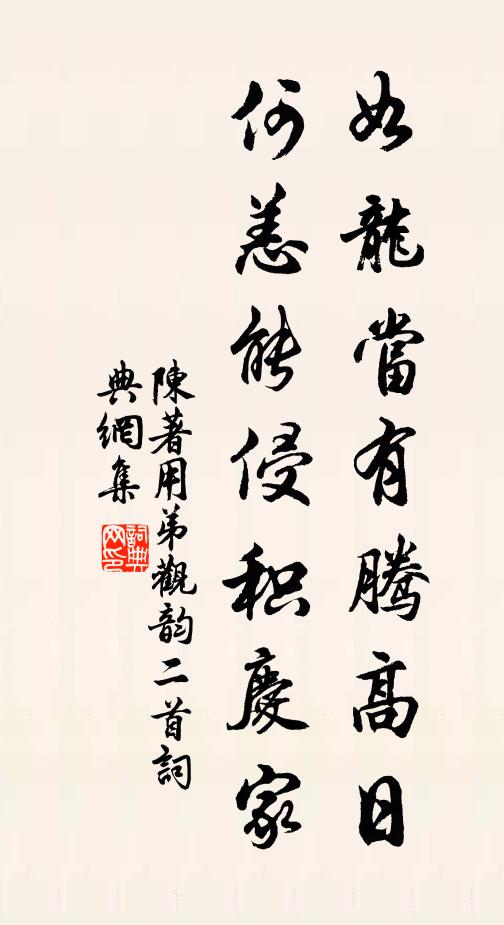 如龍當有騰高日
何恙能侵积慶家
陳著用弟觀韵二首詞
典網集
詞典网印